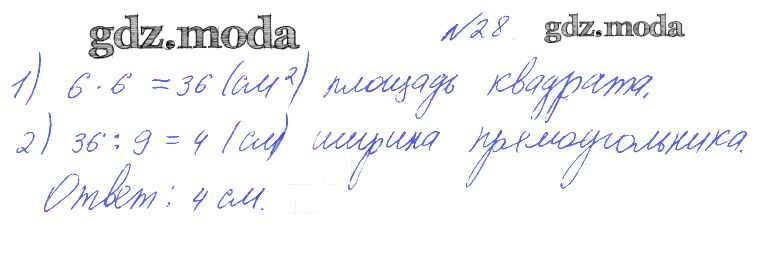 gdz.moda №28. gdz.moda
1) 6 · 6 = 36 (см²) площадь квадрата.
2) 36 : 9 = 4 (см) ширина прямоугольника.
Ответ: 4 см.